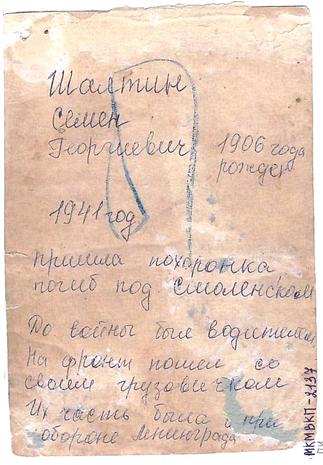 Шалтин
Семен
Георгиевич 1906 года
рожден
1941 год
пришла похоронка
погиб под Смоленском
До войны был водителем
На фронт пошел со
своим грузовичком
Их часть была и при
обороне Ленинграда.
МКМВКП-2137